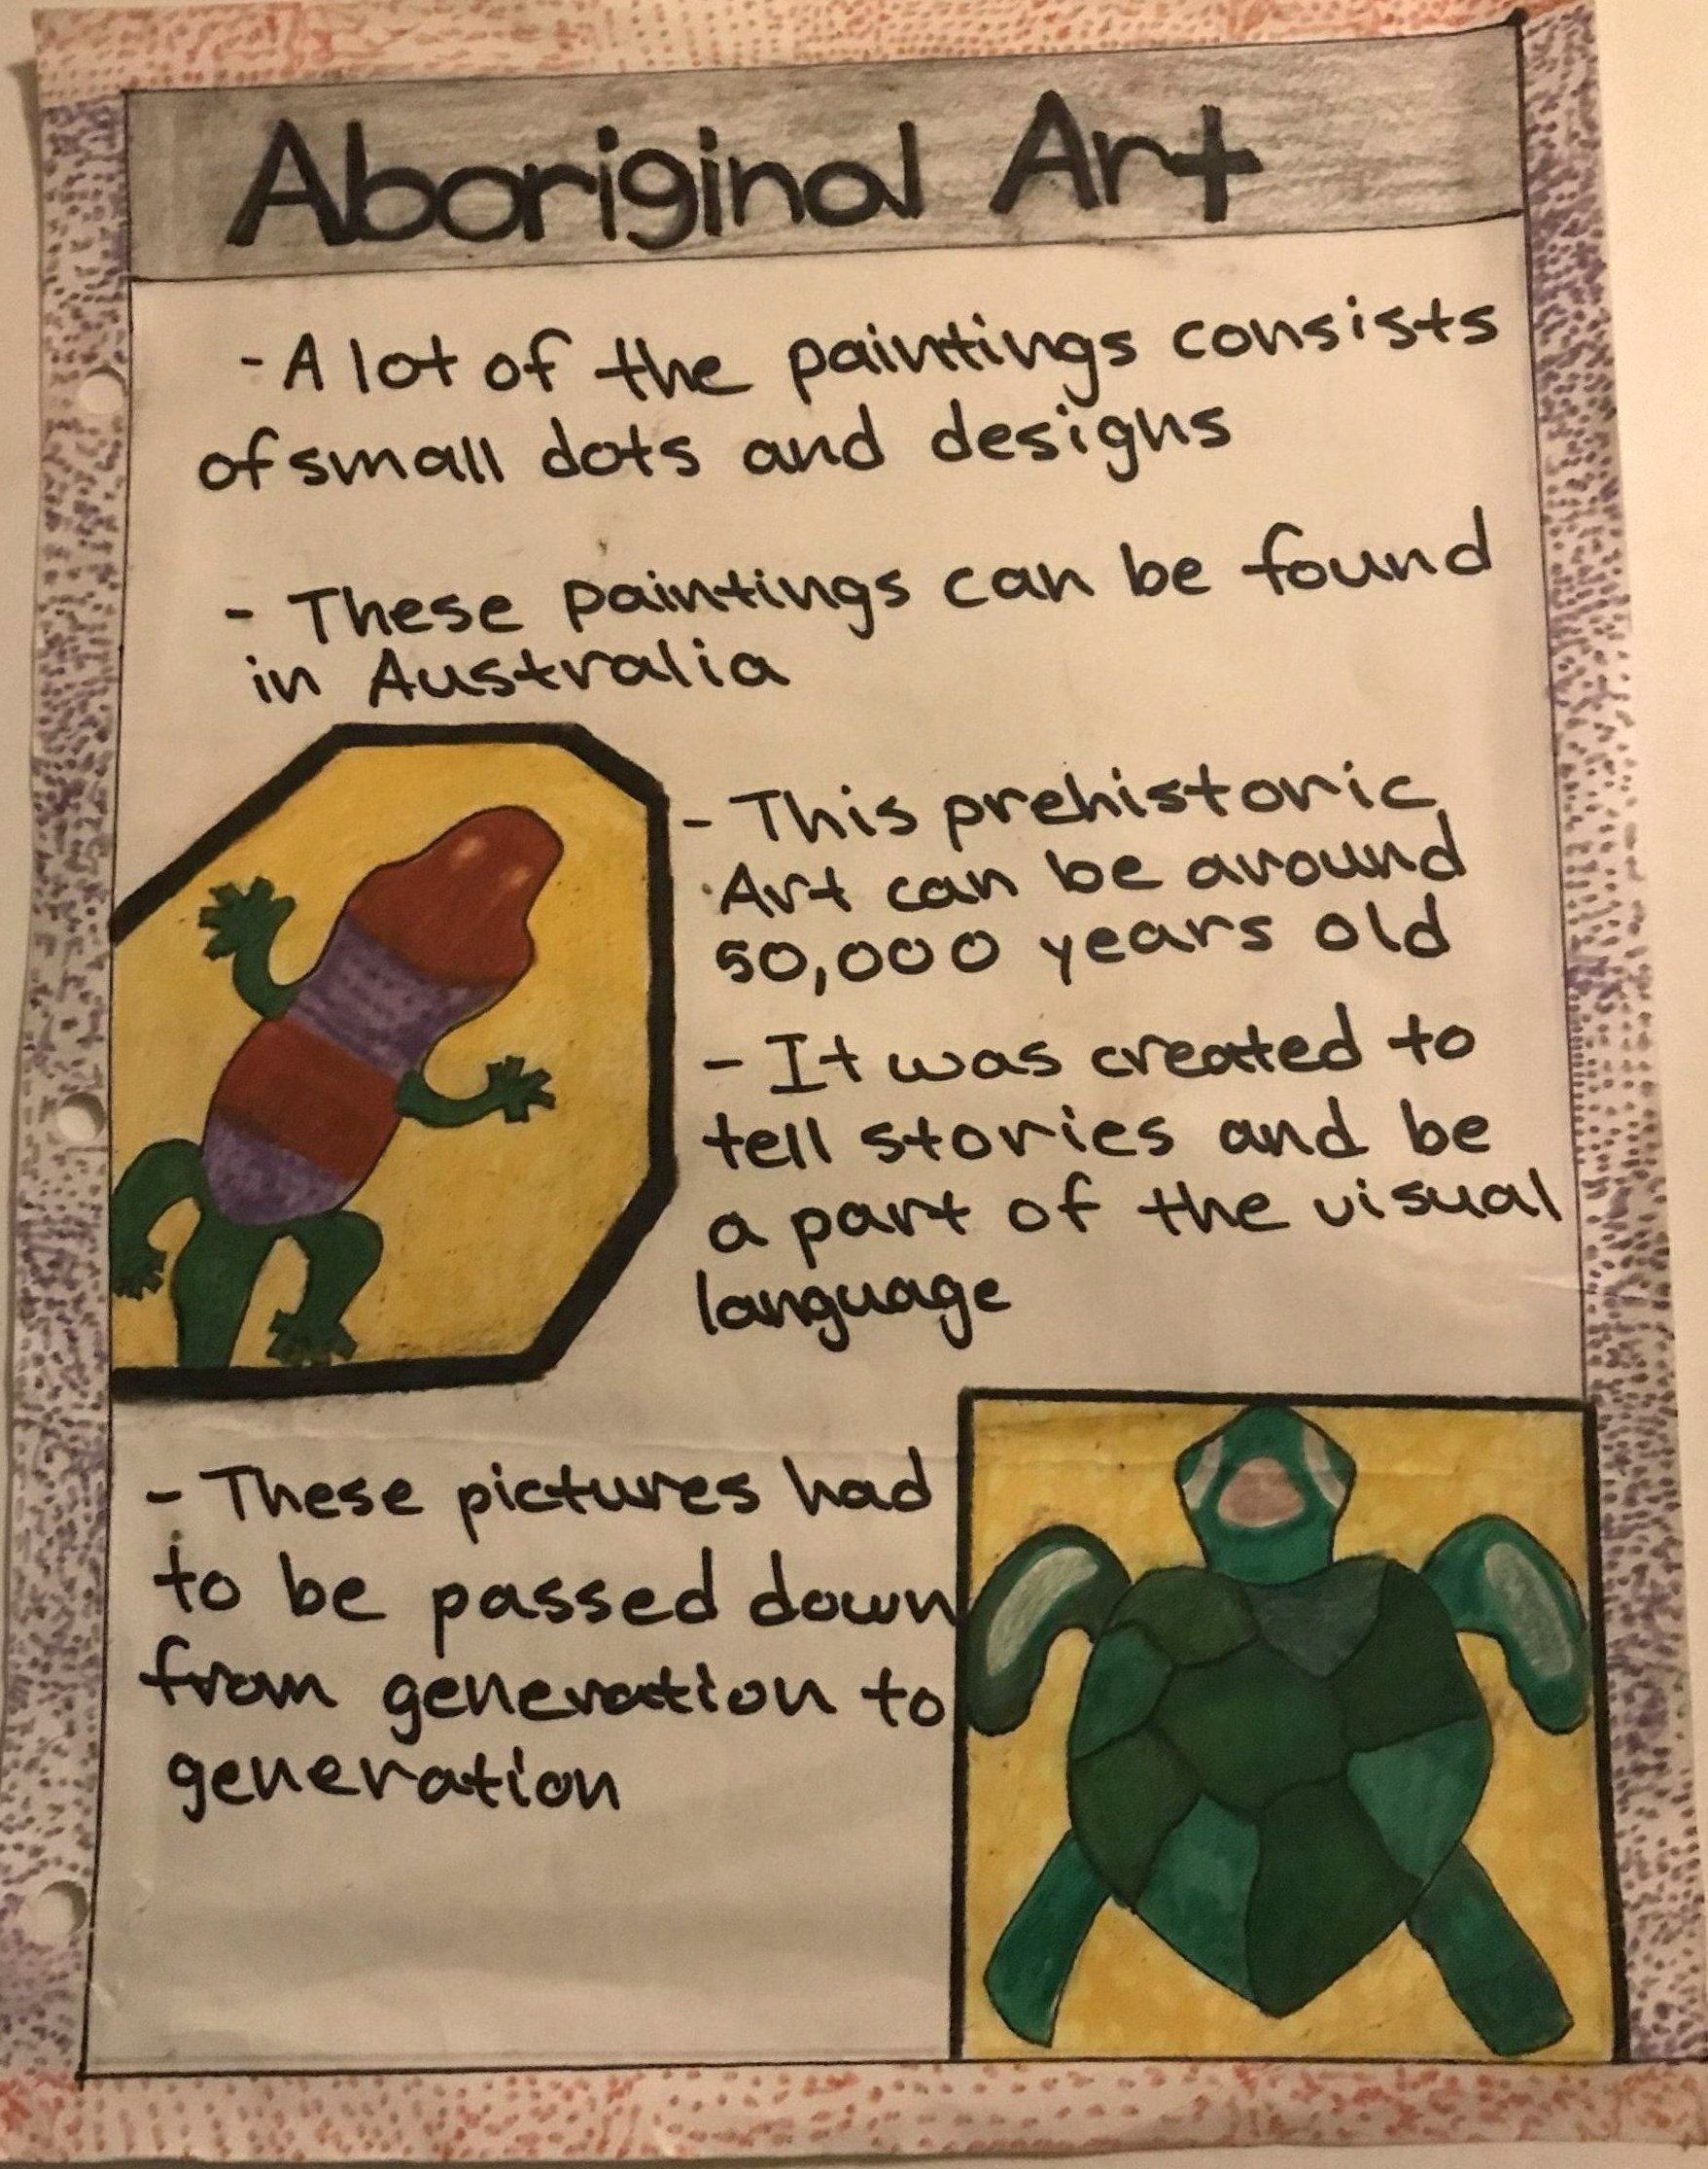 Aboriginal Art
- A lot of the paintings consists
of small dots and designs
- These paintings can be found
in Australia
- This prehistoric
Art can be around
50,000 years old
- It was created to
tell stories and be
a part of the visual
language
- These pictures had
to be passed down
from generation to
generation